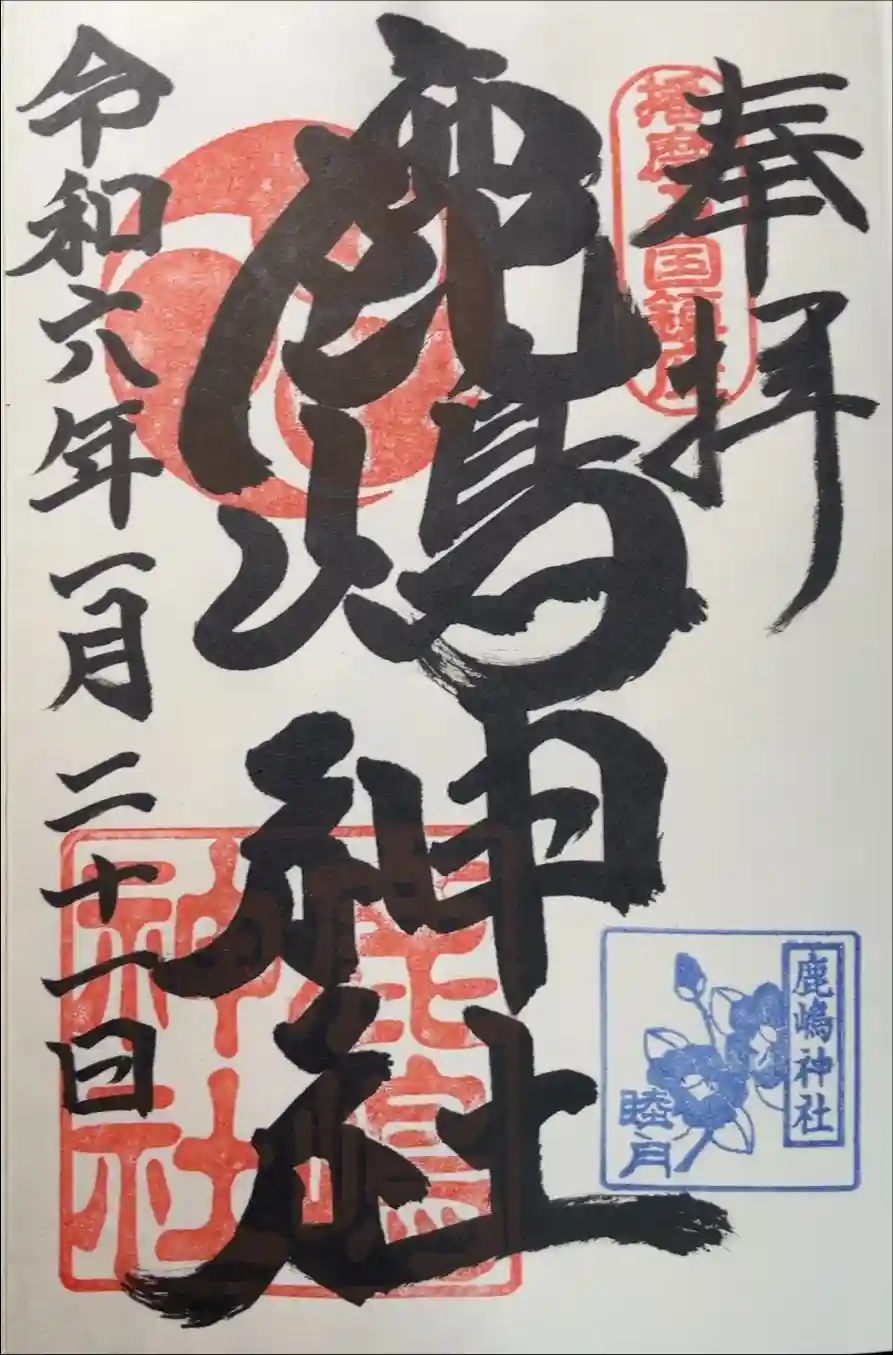 奉拝
播磨之国鎮座
鹿嶋神社
鹿嶋神社
令和六年一月二十一日
鹿嶋神社
睦月